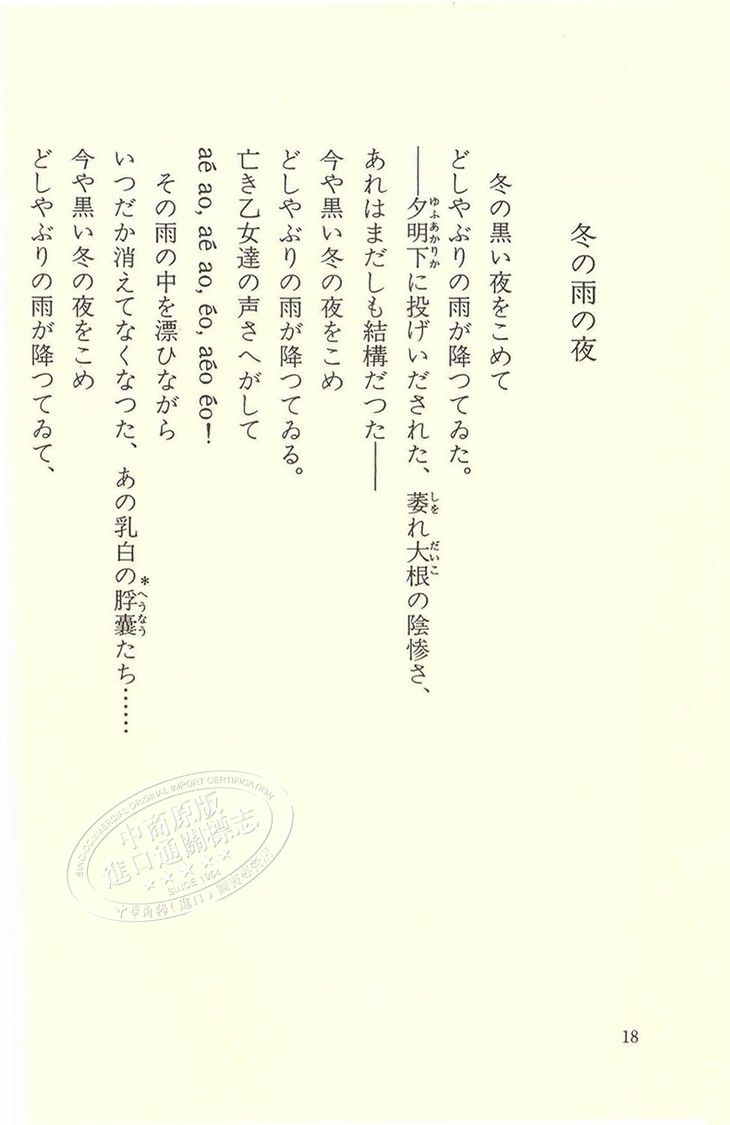 冬の雨の夜
冬の黒い夜をこめて
どしやぶりの雨が降つてゐた。
――夕明下に投げいだされた、萎れ大根の陰惨さ、
ゆふあかりか
しを
だいこ
あれはまだしも結構だつた――
今や黒い冬の夜をこめ
どしやぶりの雨が降つてゐる。
亡き乙女達の声さへがして
aé ao, aé ao, éo, aéo éo!
その雨の中を漂ひながら
いつだか消えてなくなつた、あの乳白の*脬嚢たち……
へうなう
今や黒い冬の夜をこめ
どしやぶりの雨が降つてゐて、
18
SINO-COMMERCIAL ORIGINAL IMPORT CERTIFICATION
中商原版
進口通關標志
★★★★★
SINCE 1954